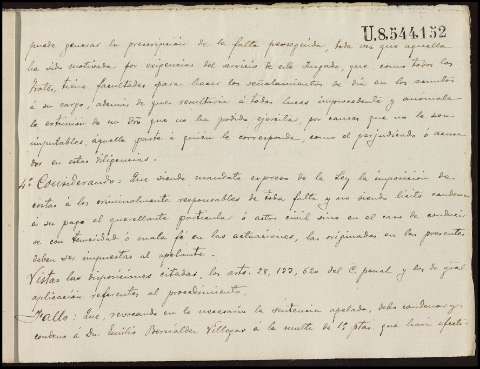 U.8.544.152
puede generar la prescripción de la falta perseguida, toda vez que aquella
ha sido motivada por exigencias del servicio de este Juzgado, que como todos los
tiene facultades para hacer los señalamientos de día en los asuntos
á su cargo, además de que resultaría á todas luces improcedente y anómala
la extinción de un dro que no ha podido ejercitar, por causas que no le son
imputables, aquella parte á quien le corresponde, como el perjudicado ó
dos en estas diligencias.
4º Considerando: Que siendo mandato expreso de la Ley la imposición de
costas á los criminalmente responsables de toda falta y no siendo lícito condenar
á su pago al querellante particular ó actor civil sino en el caso de conducir
se con temeridad ó mala fé en las actuaciones, las originadas en las presentes
deben ser impuestas al apelante.
Vistas las disposiciones citadas, los arts. 28, 133, 620 del C. penal y los de gral
aplicación referentes al procedimiento.
Fallo: Que, revocando en lo necesario la sentencia apelada, debo condenar y
condeno á Dn. Emilio Bernáldez Villegas á la multa de ptas. que hará efecti-